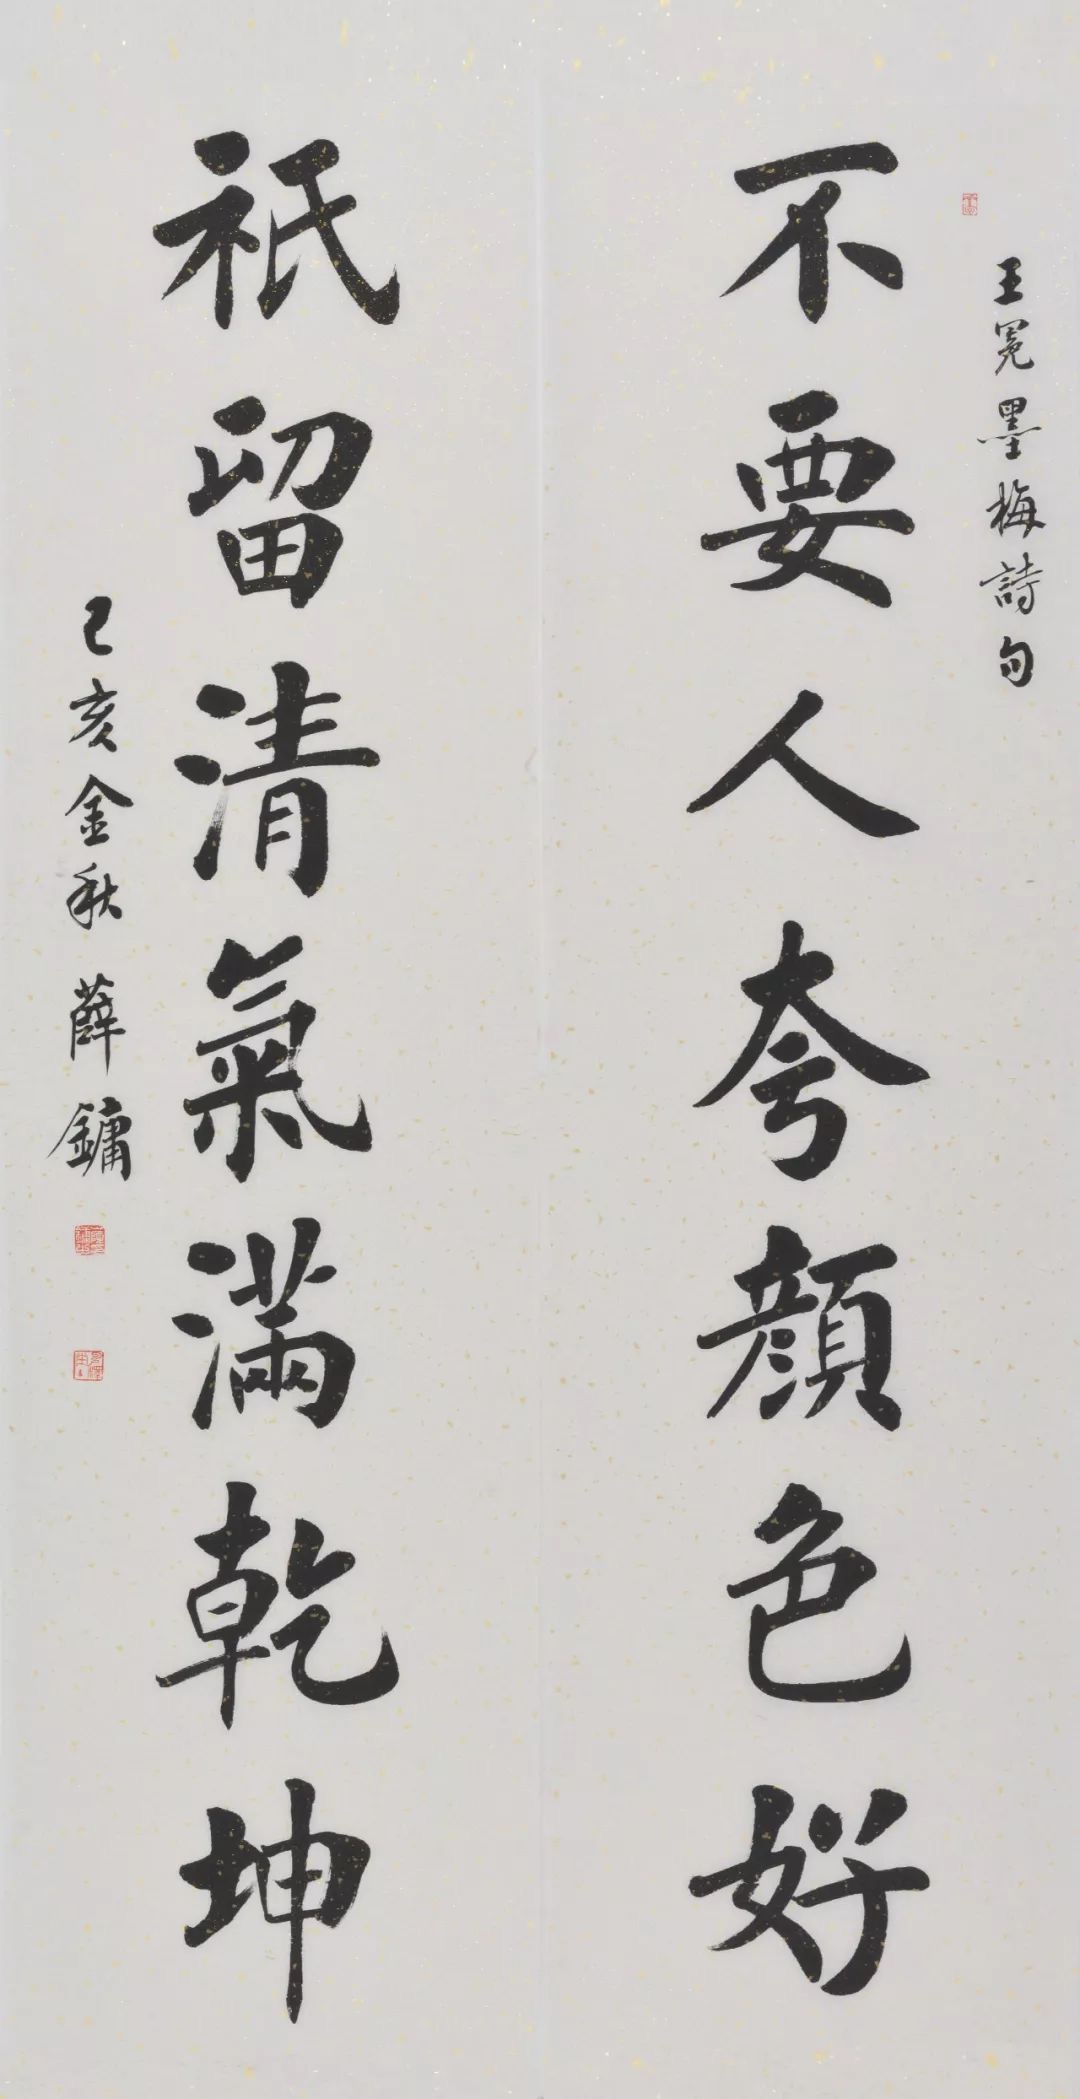 王冕墨梅詩句
不要人夸顔色好
祇留清氣滿乾坤
己亥金秋薛鏞